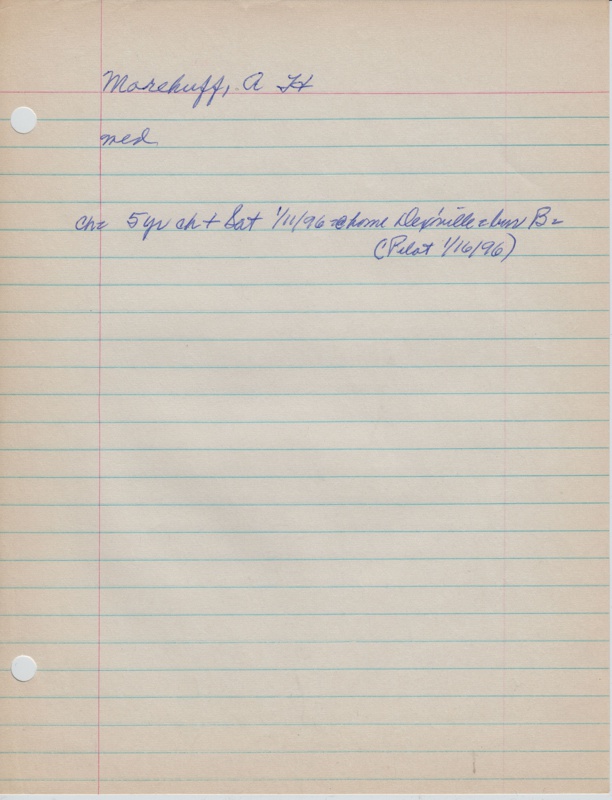 Morehuff, A H
med
ch= 5 yr ch + Sat 1/11/96 @ home Dex'ville = bur B=
(Pilot 1/16/96)